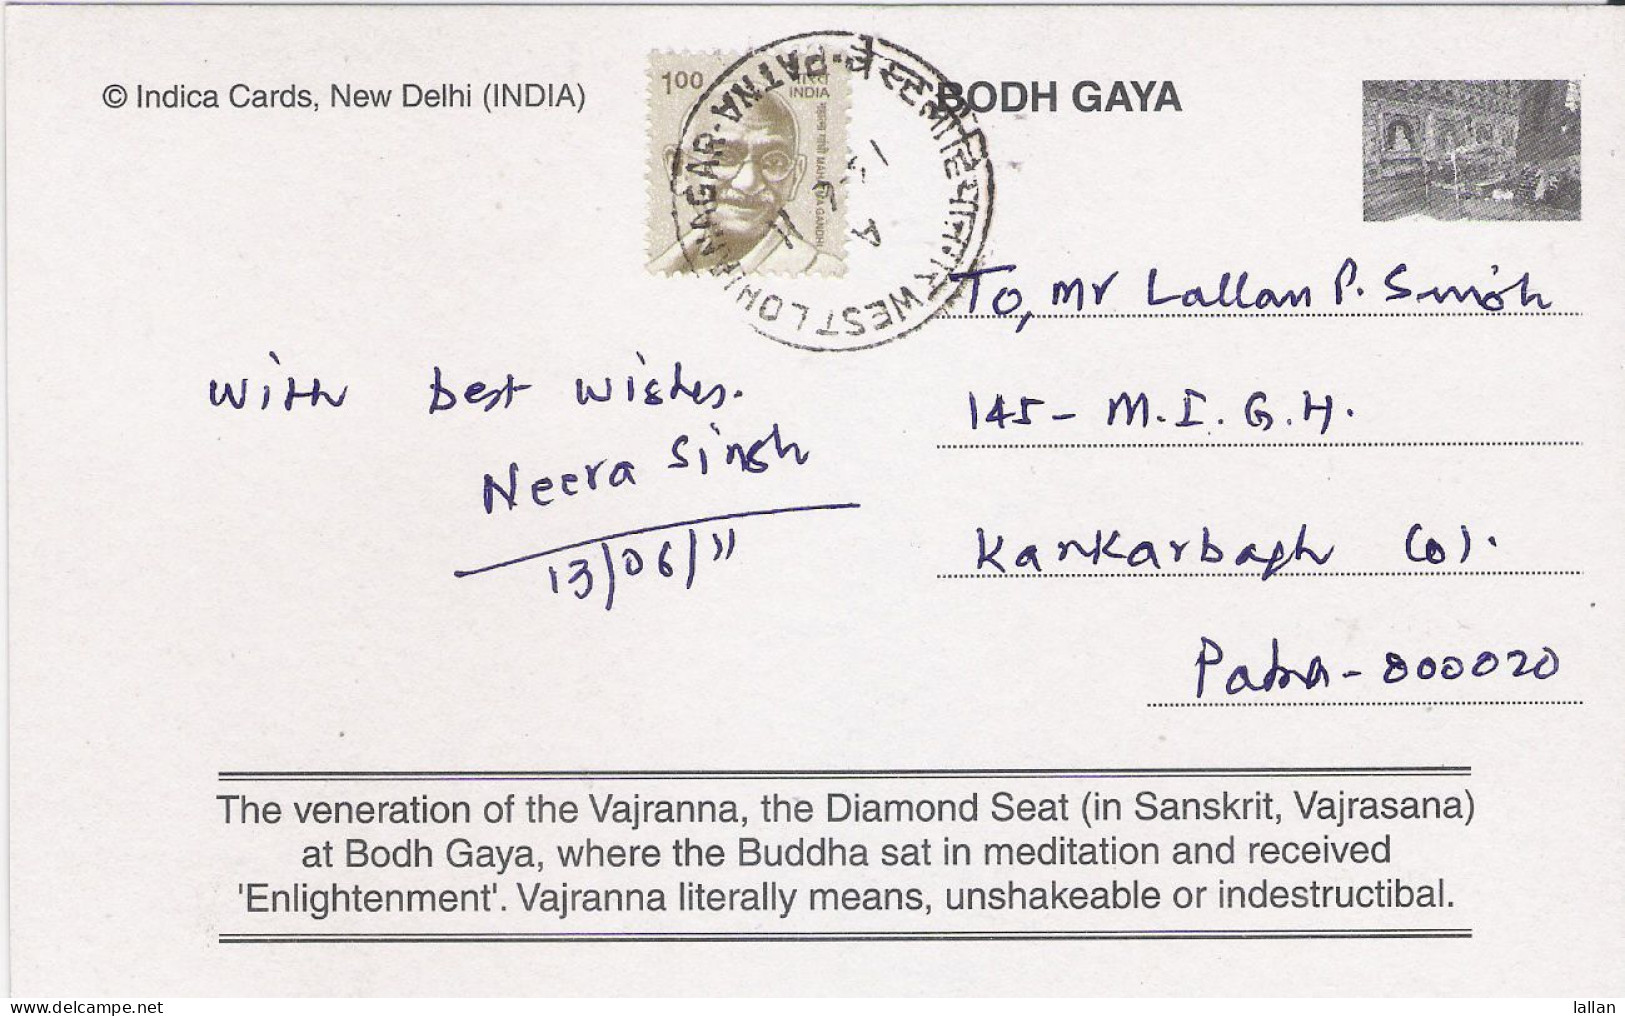 © Indica Cards, New Delhi (INDIA)
100
भारत
INDIA
महात्मा गांधी MAHATMA GANDHI
WEST LOHIANAGAR-PATNA
A
BODH GAYA
To, Mr Lallan P. Singh
145- M.I.G.H.
Kankarbagh Col.
Patna-800020
With best wishes.
Neera Singh
13/06/11
The veneration of the Vajranna, the Diamond Seat (in Sanskrit, Vajrasana)
at Bodh Gaya, where the Buddha sat in meditation and received
'Enlightenment'. Vajranna literally means, unshakeable or indestructibal.
www.delcampe.net
lallan